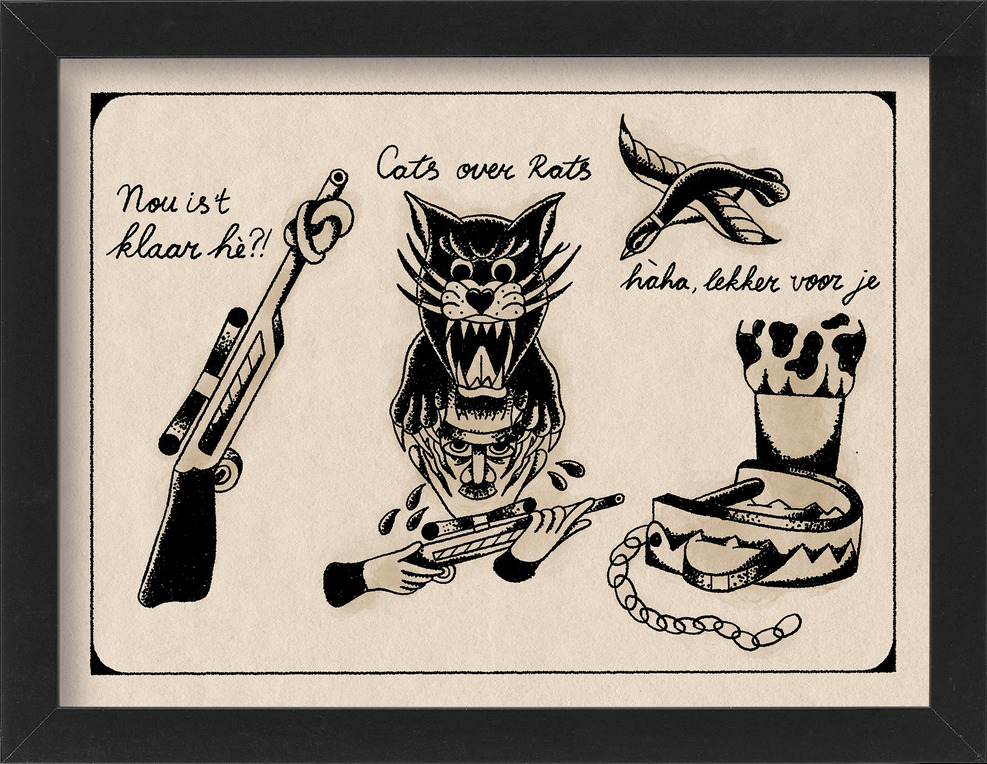 Nou is't
klaar hè?!
Cats over Rats
hàha, lekker voor je